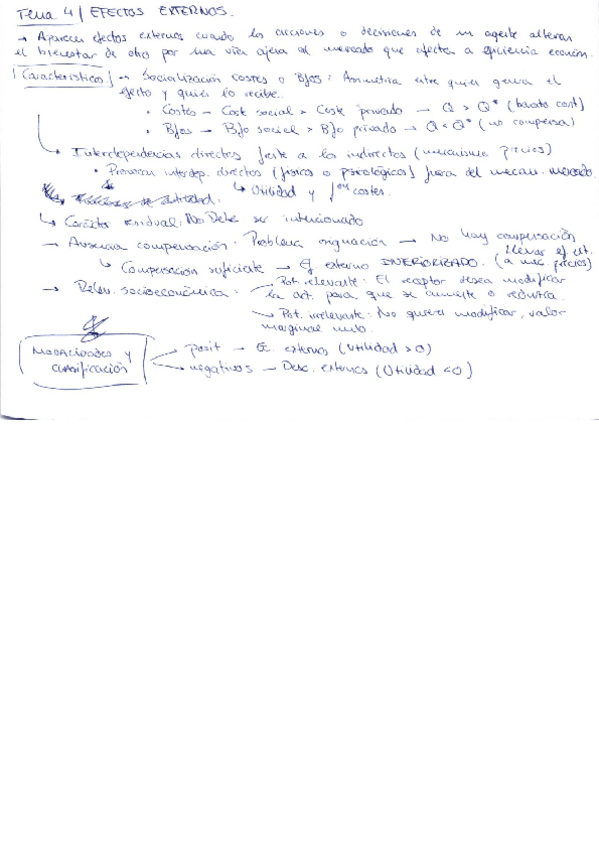 Tema 4 / EFECTOS EXTERNOS.
→ Aparecen efectos externos cuando las acciones o decisiones de un agente alteran
el bienestar de otro por una vía ajena al mercado que afectan a eficiencia económ.
Características → Socialización costes o Bfos: Asimetría entre quien genera el
efecto y quien lo recibe.
• Costes – Cost social > Coste privado → Q > Q* (barato cost)
• Bfos – Bfo social > Bfo privado → Q < Q* (no compensa)
Interdependencias directas frente a las indirectas (mecanismo precios)
• Provocan interdep. directas (físicos o psicológicos) fuera del mecan. mercado.
↳ Utilidad y costes.
↳ Carácter residual: No Debe ser intencionado
→ Ausencia compensación: Problema asignación → No hay compensación
↳ Compensación suficiente → Ef externo INTERIORIZADO. (a mec precios)
→ Relev. socioeconómica: Pot. relevante: El receptor desea modificar
la act. para que se aumente o reduzca.
→ Pot. irrelevante: No quiere modificar, valor
marginal nulo.
MODALIDADES y
CLASIFICACIÓN
posit → Ec. externas (Utilidad > 0)
negativos → Desc. externas (Utilidad < 0)